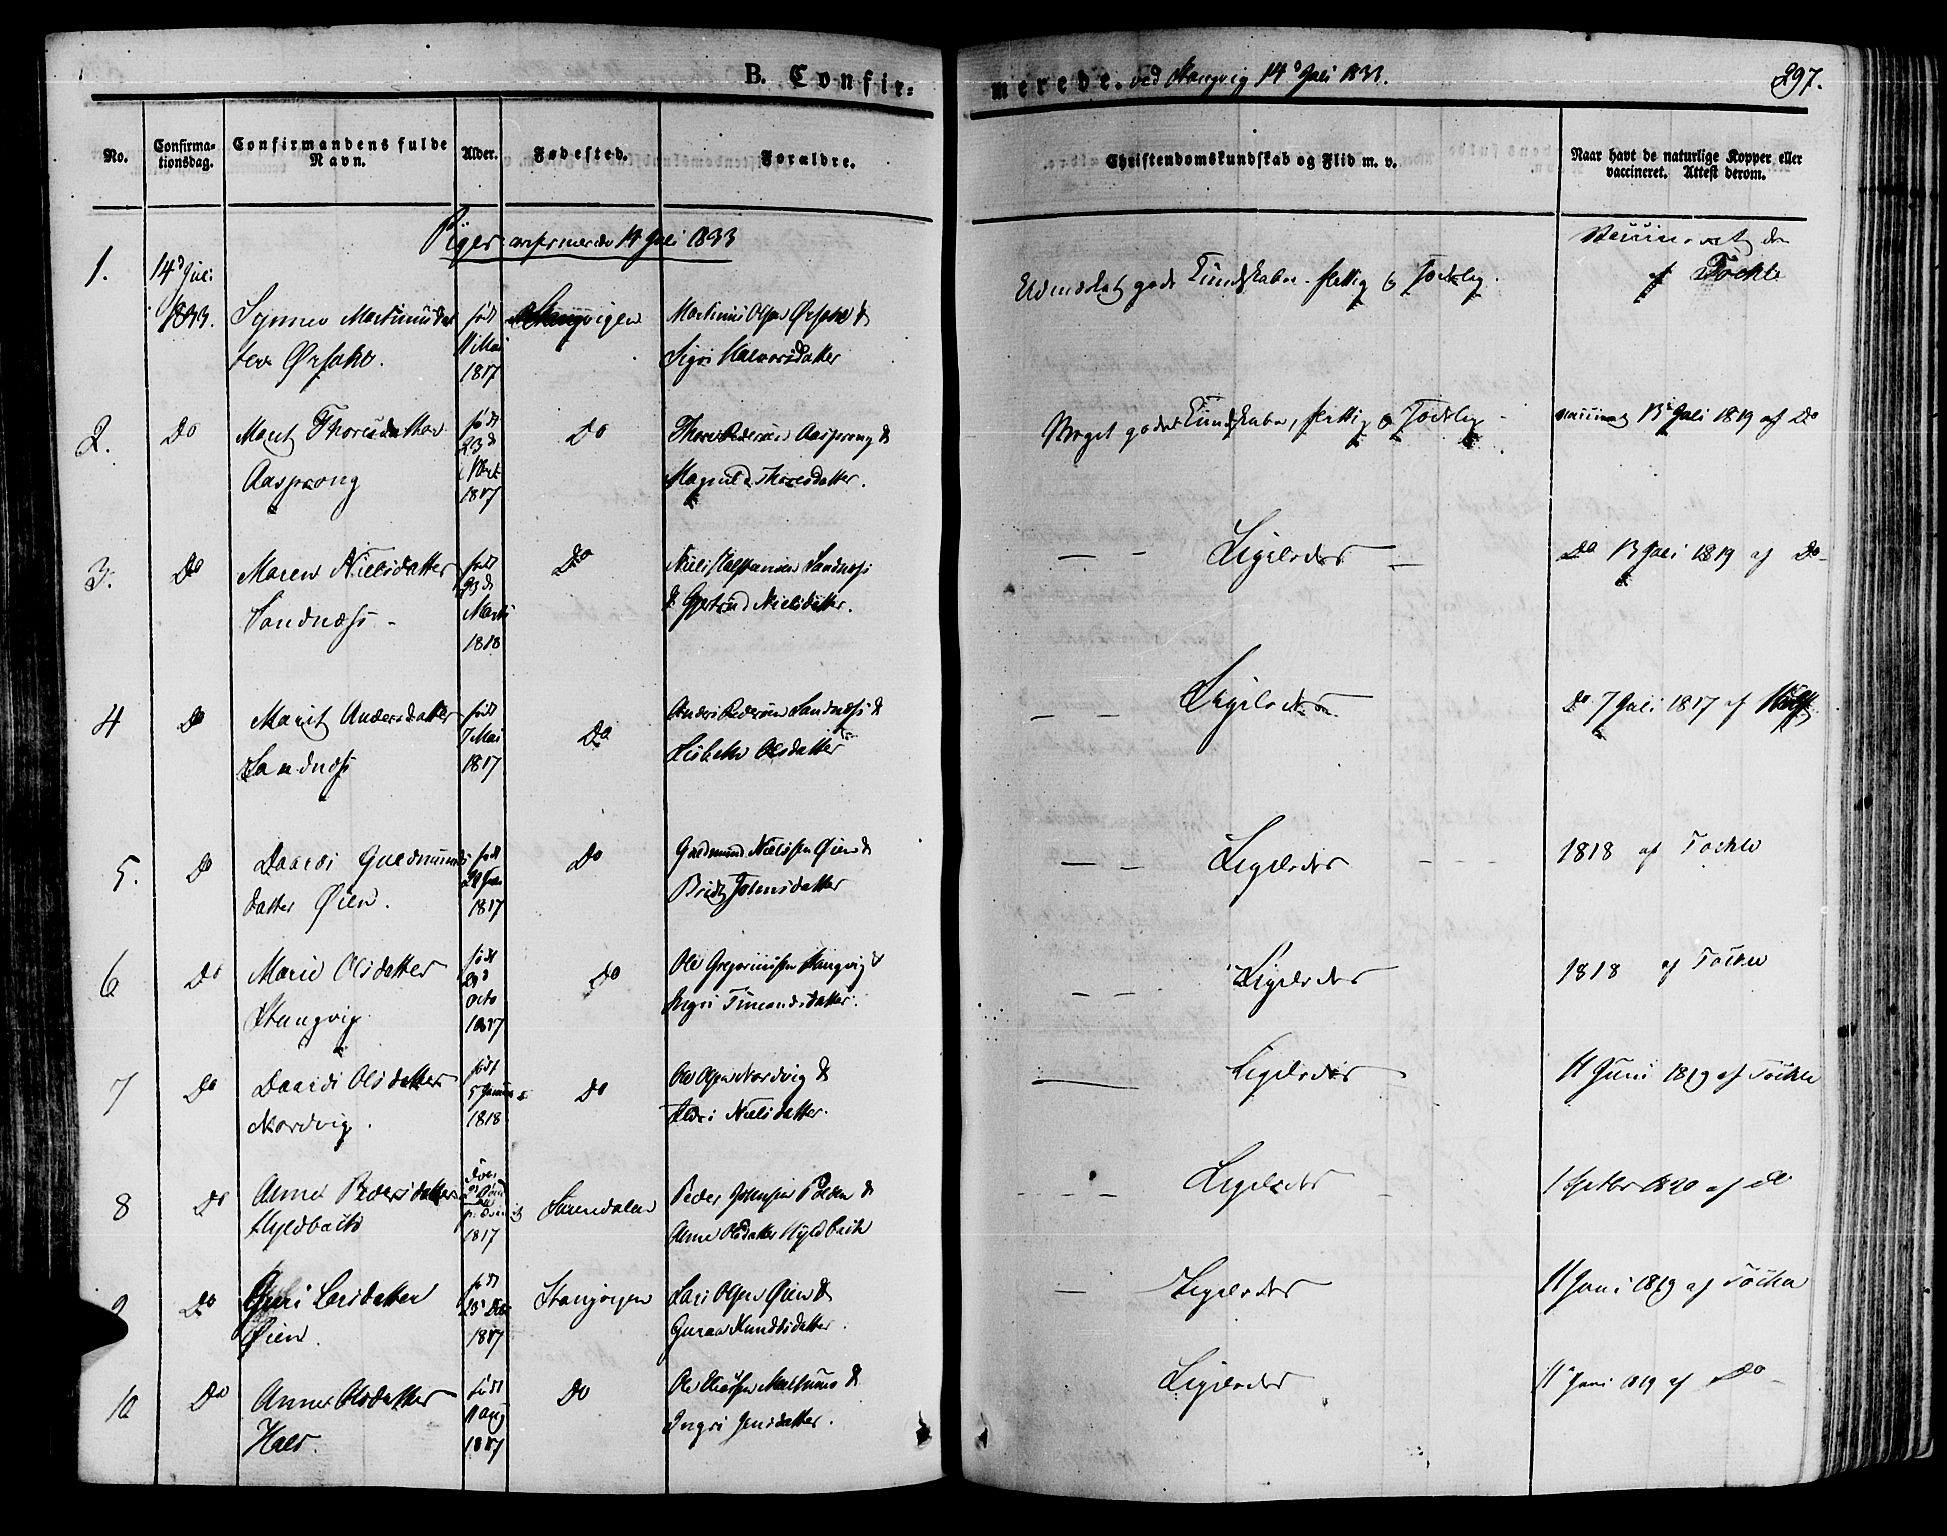 B. Confir-
merede. ved Stangvig 14d Juli 1833.
297.
No.
Confirma-
tionsdag.
Confirmandens fulde
Navn.
Alder.
Fødested.
Forældre.
Christendomskundskab og Flid m. v.
Naar havt de naturlige Kopper eller
vaccineret. Attest derom.
Piger confirmerede 14 Juli 1833
1.
14d Juli
1833.
Synnev Martinusdat
ter Ørsahl.
født
11 Mai
1817
Stangvigen
Martinus Olsen &
Sigri Halvorsdatter
gode Kundskaber. flittig og
Vaccineret den
af Tøchle
2.
Do
Marit Thoresdatter
Aasprong
født
23d
1817
Do
Thore Pedersen Aasprong &
Magnild Thoresdatter.
Meget gode Kundskaber, flittig og
13 Juli 1819 af Do
3.
Do
Maren Nielsdatter
Sandnæss
født
23d
Marts
1818
Do
Niels Sandnæss
& Gjertrud Nielsdatter.
— — Ligeledes —
Do 13 Juli 1819 af Do
4
Do
Marit Andersdatter
Sandnæss
født
7 Mai
1817
Do
Anders Pedersen Sandnæss &
Lisbeth Olsdatter
— — Ligeledes
Do 7 Juli 1817 af
5.
Do
Daardi Guldmunds
datter Øien.
født
1817
Do
Guldmund Nielsen Øien &
Brit Johnsdatter
— — Ligeledes
1818 af Tøchle
6
Do
Marie Olsdatter
Stangvig
født
29d
Octo
1817
Do
Ole Gregoriussen Stangvig &
Ingri
— — Ligeledes
1818 af Tøchle
7
Do
Daardi Olsdatter
Nordvig.
født
5 Januar
1818
Do
Ole Olsen Nordvig &
Nielsdatter.
— Ligeledes
11 Juni 1819 af Tøchle
8
Do
Anne Pedersdatter
Hyldbach
1817
Surendalen
Peder Johnsen &
Anne Olsdatter Hyldbach
— — Ligeledes
1 Septbr 1820 af Do
9
Do
Guri Larsdatter
Øien.
født
25 Dec
1817
Stangvigen
Lars Olsen Øien &
Guraa Knudsdatter.
— Ligeledes
11 Juni 1819 af Tøchle
10
Do
Anne Olsdatter
Hals.
født
11 Aug
1817
Do
Ole &
Ingri Jensdatter.
Ligeledes
11 Juni 1819 af Do